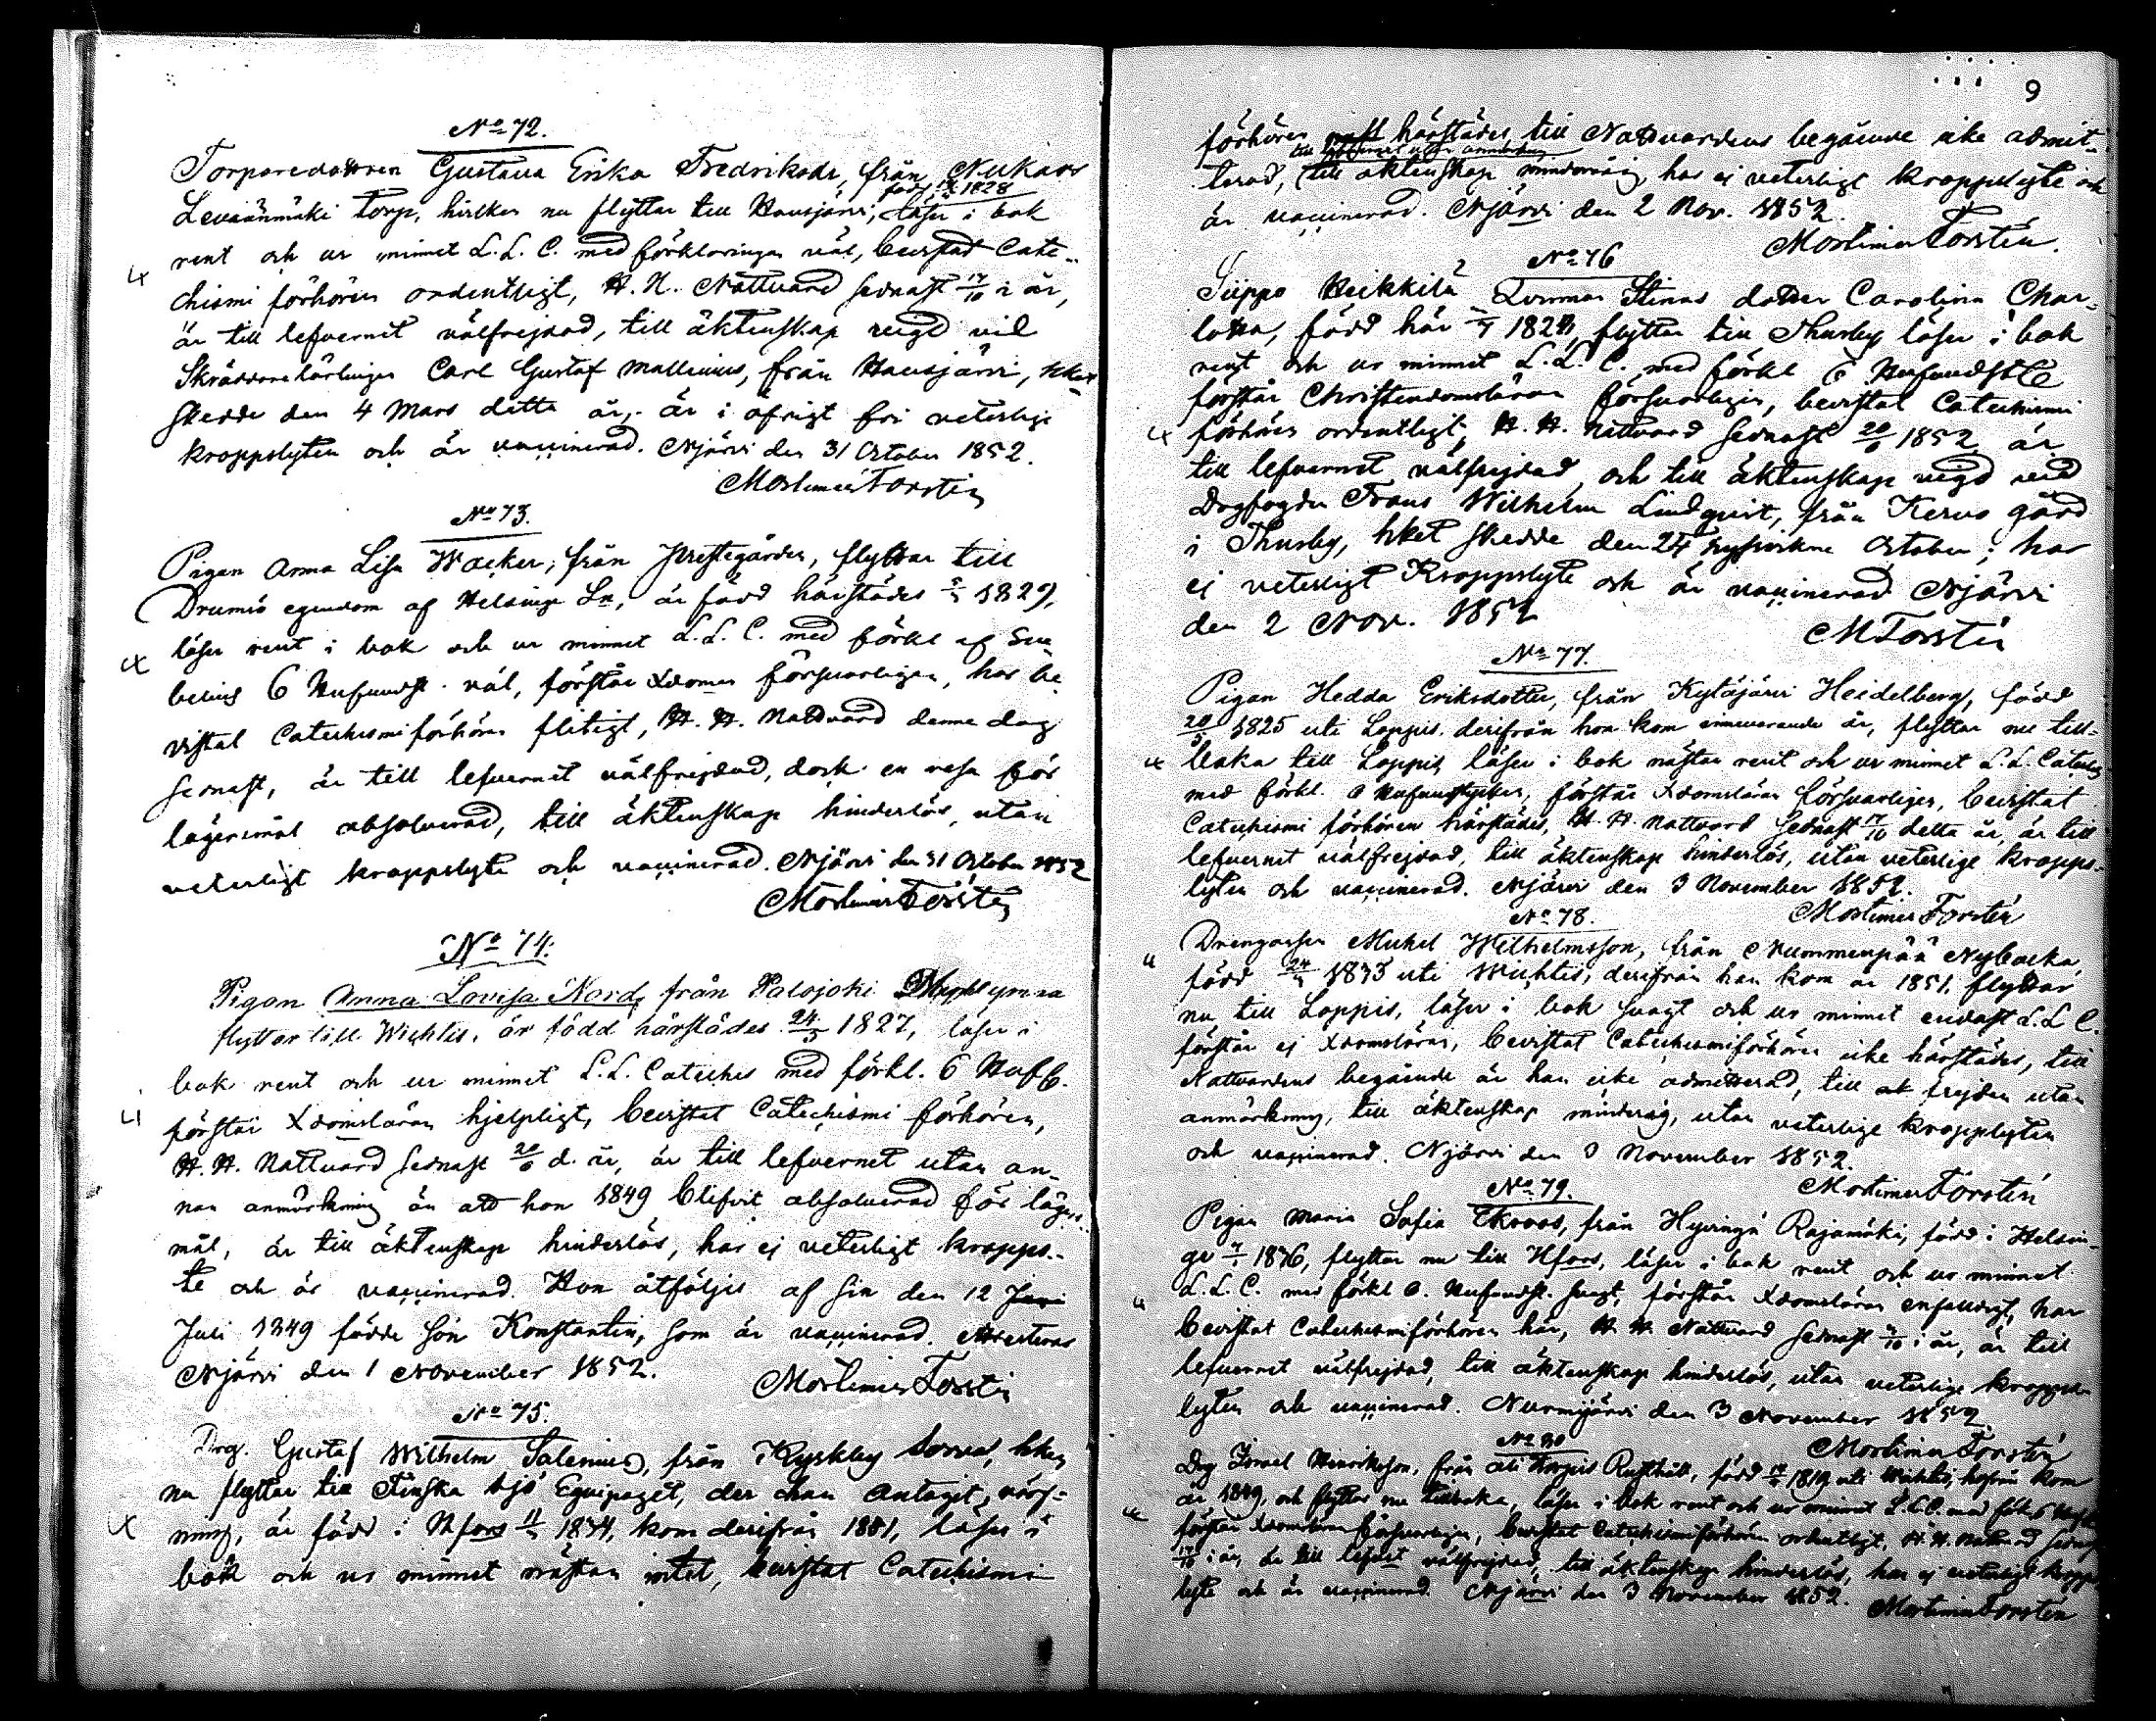 No 72.
Torparedottren Gustava Erika Fredriksdr, från Nukars
född 1828
Leväänmäki torp, hvilken nu flyttar till Hausjärvi, läser i bok
rent och ur minnet L. L. C. med förklaringen väl, bevistat Cate-
chismi förhören ordentligt, H. H. Nattvard sednast 17/10 i år,
är till lefvernet välfrejdad, till äktenskap vigd vid
Skräddarelärlingen Carl Gustaf Mallenius, från Hausjärvi, hket
skedde den 4 Mars detta år, är i öfrigt fri veterlige
kroppslyten och är vaccinerad. Njärvi den 31 October 1852.
Mortimer Forstén
No 73.
Pigan Anna Lisa Wacker, från Prestegården, flyttar till
Drumsö egendom af Helsinge Sn, är född härstädes 1829,
läser rent i bok och ur minnet L. L. C. med förkl af Sve-
belius 6 Hufvudst. väl, förstår Xdomen försvarligen, har be-
vistat Catechismiförhören flitigt, H. H. Nattvard denne dag
sednast, är till lefvernet välfrejdad, dock en resa för
lägersmål absolverad, till äktenskap hinderlös, utan
veterligt kroppslyte och vaccinerad. Njärvi den 31 October 1852
Mortimer Forstén
No 74.
Pigan Anna Lovisa Nord, från Palojoki
flyttar till Wichtis, är född härstädes 24/5 1827, läser i
bok rent och ur minnet L. L. Cateches med förkl. 6 Hufb.
förstår Xdomsläran hjelpligt, bevistat Catechismi förhören,
H. H. Nattvard sednast 20/6 d. år, är till lefvernet utan an-
nan anmärkning än att hon 1849 blifvit absolverad för lägers-
mål, är till äktenskap hinderlös, har ej veterligt kropps-
te och är vaccinerad. Hon åtföljes af sin den 12 Juni
Juli 1849 födde son Konstantin, som är vaccinerad. Attesteras
Njärvi den 1 November 1852.
Mortimer Forstén
No 75.
Drg. Gustaf Wilhelm Salenius, från Kyrkby Sorva, hken
nu flyttar till Finska Sjö Equipaget, der han antagit värf-
ning, är född i Hfors 1834, kom derifrån 1851, läser i
bok och ur minnet nästan intet, bevistat Catechismi
9
förhören härstädes, till Nattvardens begående icke admit-
till lefvernet utan anmärkning
terad, till äktenskap minderårig, har ej veterligt kroppslyte och
är vaccinerad. Njärvi den 2 Nov. 1852.
Mortimer Forstén.
No 76
Siippo Heikkilä Stinas dotter Carolina Char-
lotta, född här flyttar till Thusby, läser i bok
rent och ur minnet L. L. C. med förkl 6 Hufvudst
förstår Christendomsläran försvarligen, bevistat Catechismi
förhören ordentligt, H. H. Nattvard sednast 20/6 1852 är
till lefvernet välfrejdad, och till äktenskap vigd vid
Drgfogden Frans Wilhelm Lindqvist, från Kervo gård
i Thusby, hket skedde den 24 nyssvikne October; har
ej veterligt Kroppslyte och är vaccinerad Njärvi
den 2 Nov. 1852
M Forstén
No 77.
Pigan Hedda Eriksdotter, från Kytäjärvi Heidelberg, född
1825 uti Loppis, derifrån hon kom innevarande år, flyttar nu till-
baka till Loppis, läser i bok nästan rent och ur minnet L. L. Cateches
med förkl. 6 Hufvudstycken, förstår Xdomsläran försvarligen, bevistat
Catechismi förhören härstädes, H. H. Nattvard sednast 17/10 detta år, är till
lefvernet välfrejdad, till äktenskap hinderlös, utan veterlige kropps-
lyten och vaccinerad. Njärvi den 3 November 1852.
Mortimer Forstén
No 78.
Drengossen Mickel Wilhelmsson, från Nummenpää Nybacka,
född 1833 uti Wichtis, derifrån han kom år 1851, flyttar
nu till Loppis, läser i bok svagt och ur minnet endast L. L C.
förstår ej Xdomsläran, bevistat Catechismiförhören icke härstädes, till
Nattvardens begående är han icke admitterad, till frejden utan
anmärkning, till äktenskap minderårig, utan veterlige kroppslyten
och vaccinerad. Njärvi den 3 November 1852.
Mortimer Forstén
No 79.
Pigan Maria Sofia Ekroos, från Hyvinge Rajamäki, född i Helsin-
ge flyttar nu till Hfors, läser i bok rent och ur minnet
L. L. C. med förkl 6. Hufvudst. svagt, förstår Xdomsläran enfaldigt, har
bevistat Catechismiförhören här, H. H. Nattvard sednast i år, är till
lefvernet välfrejdad, till äktenskap hinderlös, utan veterlige kropps-
lyten och vaccinerad. Nurmijärvi den 3 November 1852
Mortimer Forstén
No 80
Drg Israel Henriksson, från Ali Rusthåll, född 1819 uti Wichtis, hvifrån kom
år 1849, och flyttar nu tillbaka, läser i bok rent och ur minnet L. L. C. med förk. 6
förstår Xdomsläran försvarligen, bevistat Catechismiförhören ordentligt, H. H. Nattvard sednast
17/10 i år, är till lefvernet välfrejdad, till äktenskap hinderlös, har ej veterligt kropps
lyte och är vaccinerad Njärvi den 3 November 1852.
Mortimer Forstén